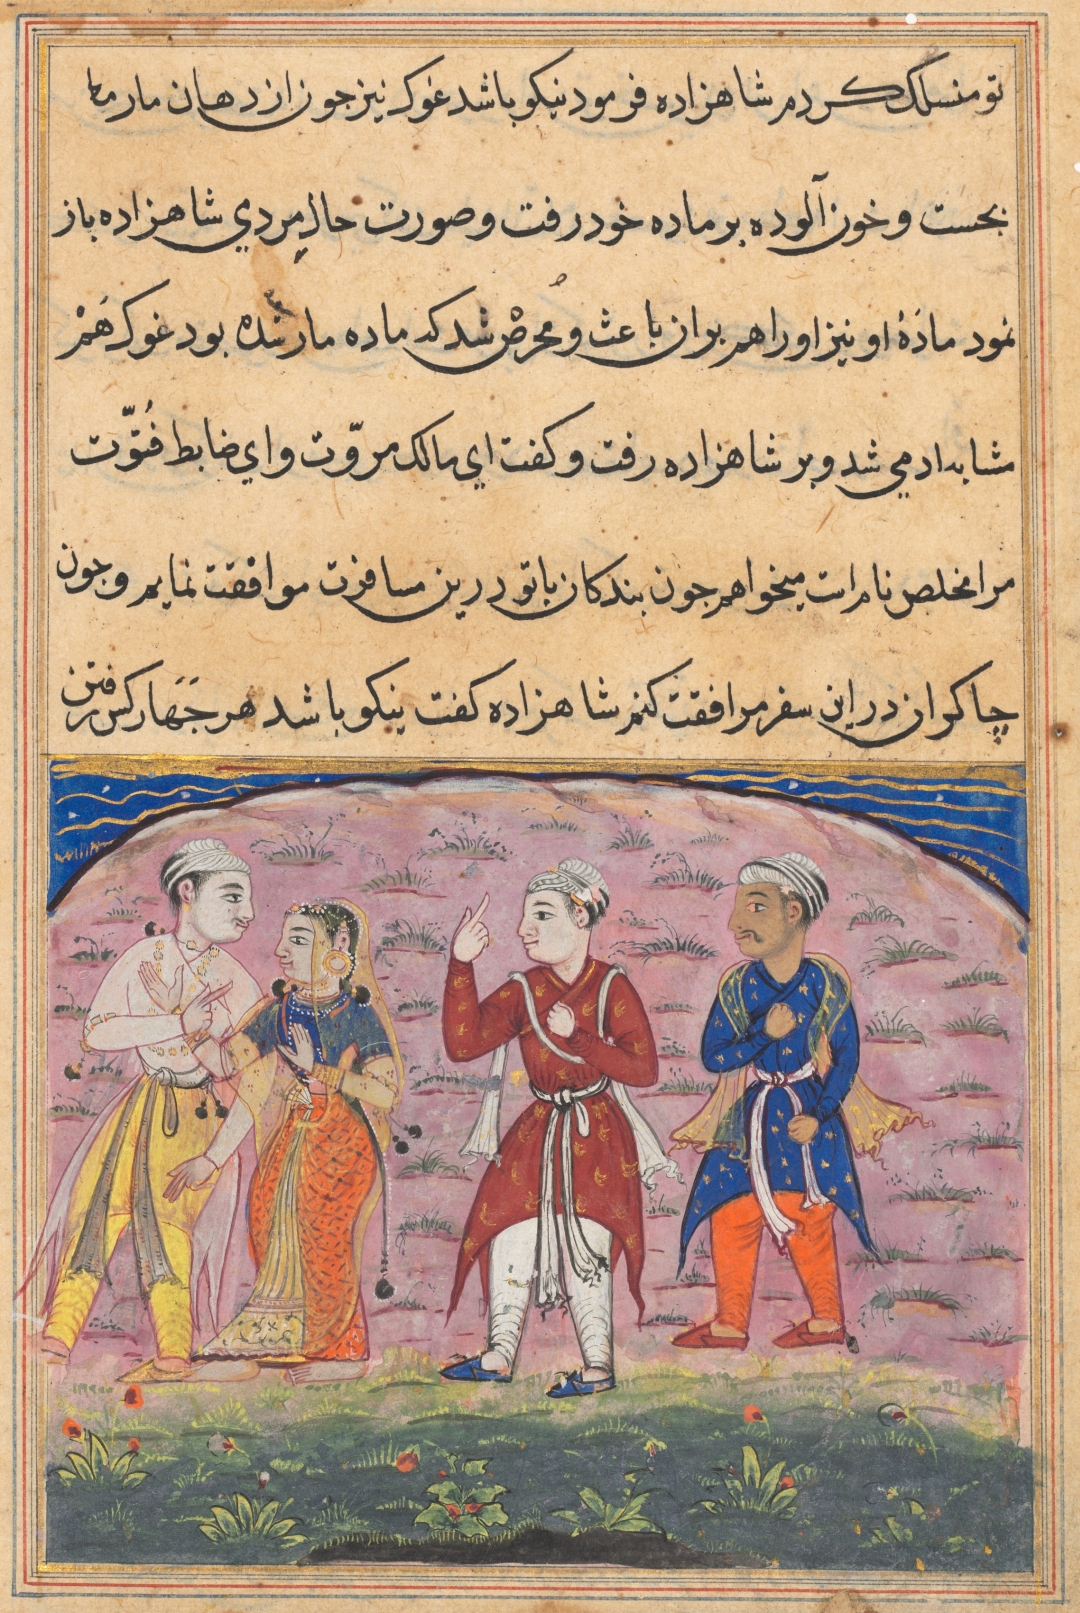 تو منسلک کردم شاهزاده فرمود نیکو باشد غوک نیز چون از دهان مار رها
بجست و خون آلوده بر ماده خود رفت و صورت حال مردي شاهزاده باز
نمود مادَهٔ او نیز او را هم بران باعث و مُحرّض شد که ماده مار شده بود غوک هَمْ
مشابه ادمي شد و بر شاهزاده رفت و کفت اي مالک مروّت و اي ضابط فُتوّت
مرا مخلص نام است میخواهم جون بندکان با تو درین مسافرت موافقت نمایم و جون
چاکران در این سفر مرافقت کنم شاهزاده کفت نیکو باشد هر جَهَار کس رفتن